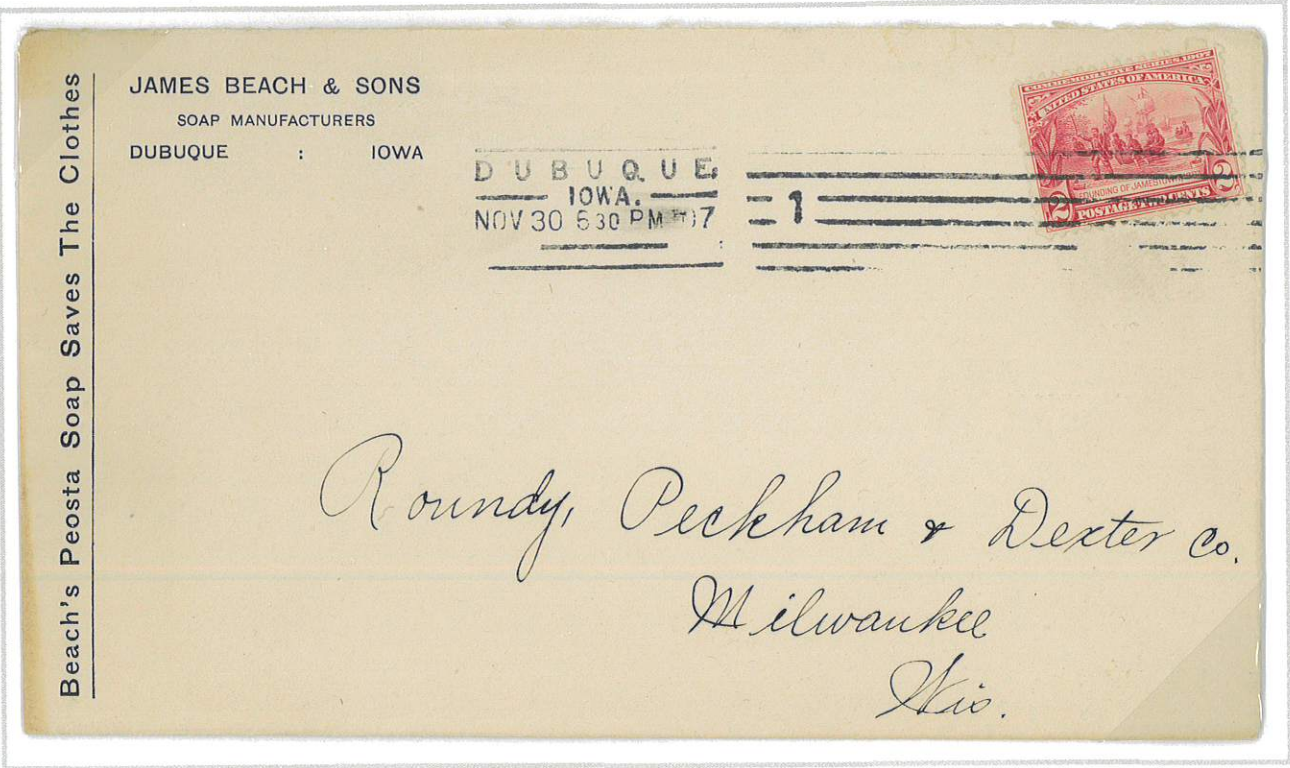 Beach's Peosta Soap Saves The Clothes
JAMES BEACH & SONS
SOAP MANUFACTURERS
DUBUQUE : IOWA
DUBUQUE,
IOWA.
NOV 30 6 30 PM 07
1
COMMEMORATIVE SERIES 1907
UNITED STATES OF AMERICA
FOUNDING OF JAMESTOWN
2 2
POSTAGE CENTS
Roundy, Peckham & Dexter Co.
Milwaukee
Wis.